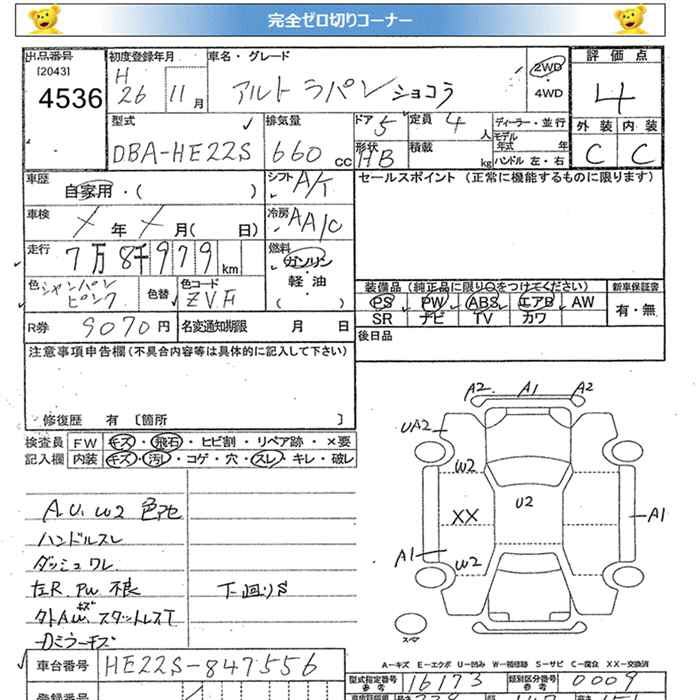 完全ゼロ切りコーナー
出品番号 [2043] 4536
初度登録年月 H 26 11月
車名・グレード アルト ラパン ショコラ
2WD・4WD
評価点 4
外装 C 内装 C
型式 DBA-HE22S
排気量 660 cc
ドア 5 定員 4 人
形状 HB 積載 kg
ディーラー・並行
モデル年式 年
ハンドル 左・右
車歴 自家用・( )
シフト A/T
セールスポイント (正常に機能するものに限ります)
車検 年 月( 日)
冷房 AA/C
走行 7万8千979km
燃料 ガソリン・軽油 ( )
色 シャンパンピンク 色替
色コード ZVF
装備品 (純正品に限り○をつけてください) 新車保証書
PS PW ABS エアB AW 有・無
SR ナビ TV カワ
R券 9070円 名変通知期限 月 日
後日品
注意事項申告欄(不具合内容等は具体的に記入して下さい)
修復歴 有 〔箇所 〕
検査員 FW キズ・飛石・ヒビ割・リペア跡・×要
記入欄 内装 キズ・汚レ・コゲ・穴・スレ・キレ・破レ
A.U.W2 色アセ
ハンドルスレ
ダッシュ ワレ
左R.PW 不良
下回りS
タトAW キズ スタットレスT
Dミラーキズ
A2 A1 A2
UA2
W2
U2
XX
A1
A1
W2
スペア
A-キズ E-エクボ U-凹み W-補修跡 S-サビ C-腐食 XX-交換済
車台番号 HE22S-847556
型式指定番号 参考 16173 類別区分番号 参考 0009
登録番号